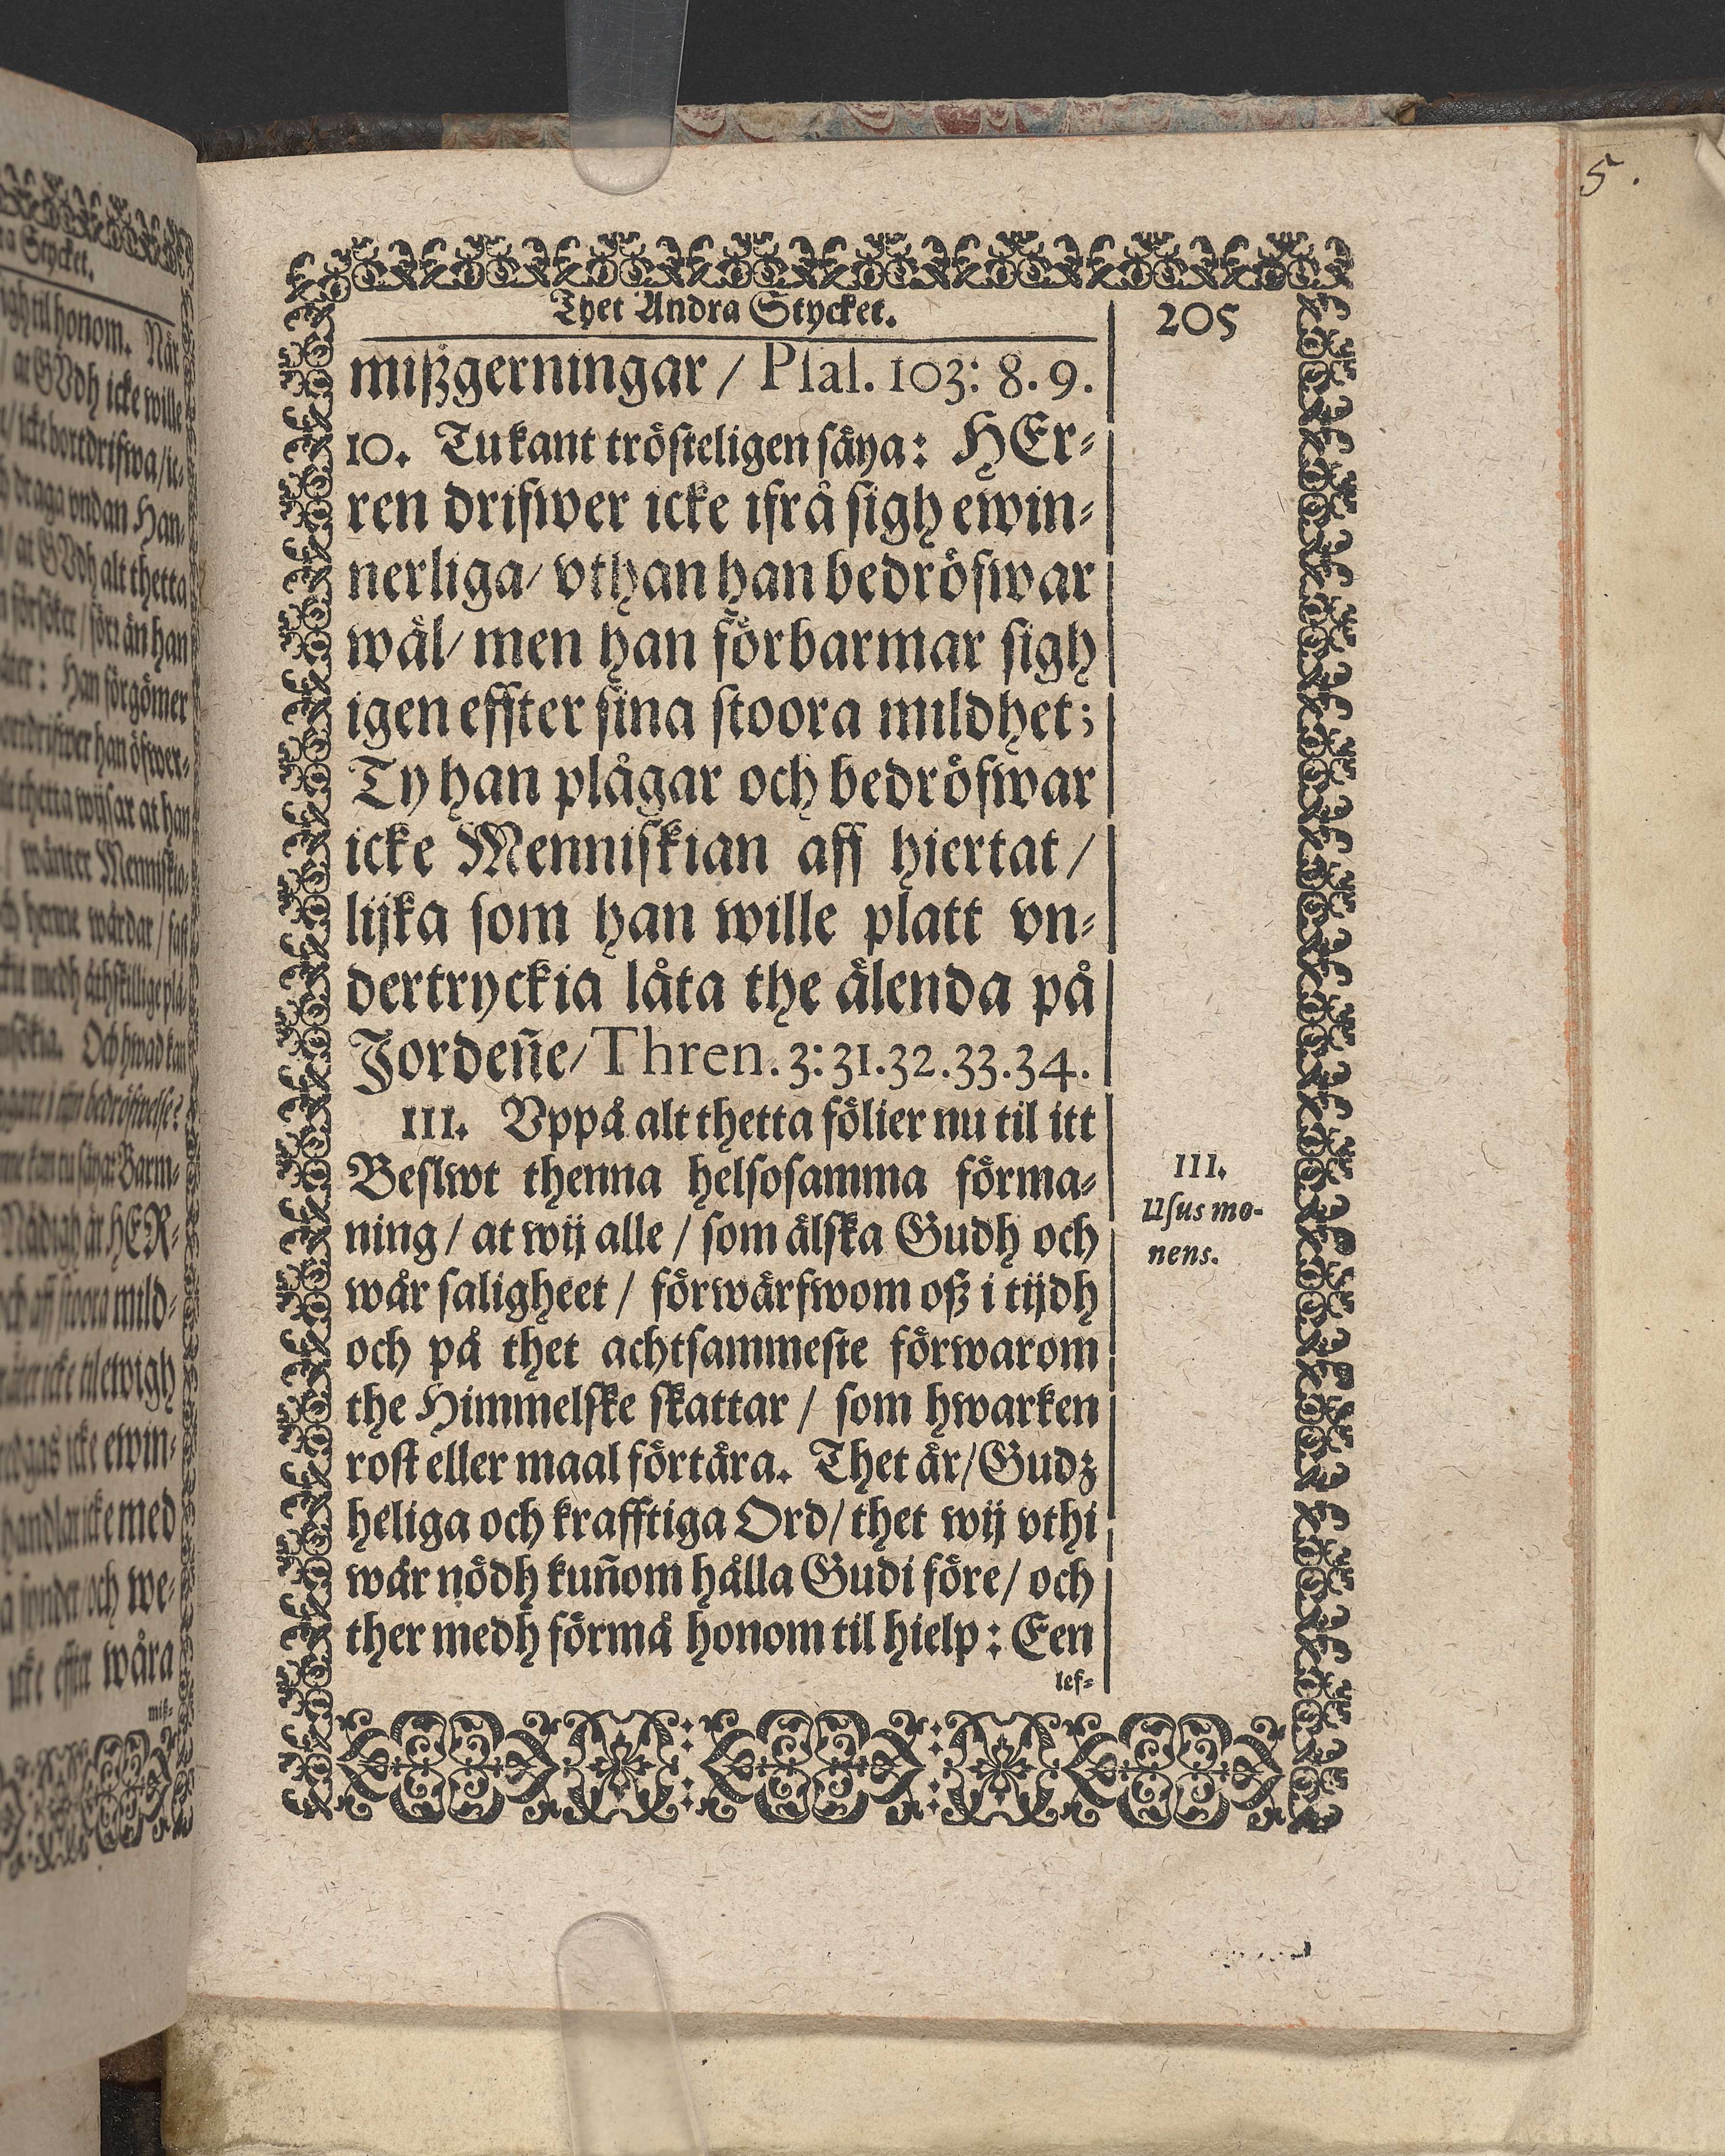 ra Stycket.
igh til honom. När
/ at GVdh icke wille
/ icke bortdrifwa / ic-
draga vndan Han-
/ at GVdh alt thetta
försöker / förr än han
åter: Han förgömer
bortdrifwer han öfwer-
thetta wijsar at han
/ wänter Menniskio-
och henne wårdar / fast
medh åthskillige plå-
Och hwad kan
i thin bedröfwelse?
kan tu säya: Barm-
Nådigh är HER-
och aff stoora mild-
icke til ewigh
icke ewin-
handlar icke med
synder / och we-
icke effter wåra
miß-
5.
Thet Andra Stycket.
205
mißgerningar / Psal. 103: 8. 9.
10. Tu kant trösteligen säya: HEr-
ren drifwer icke ifrå sigh ewin-
nerliga/ vthan han bedröfwar
wäl/ men han förbarmar sigh
igen effter sina stoora mildhet;
Ty han plågar och bedröfwar
icke Menniskian aff hiertat /
lijka som han wille platt vn-
dertryckia låta the älenda på
Jordeñe/ Thren. 3: 31. 32. 33. 34.
III. Vppå alt thetta fölier nu til itt
Beslwt thenna helsosamma förma-
ning / at wij alle / som älska Gudh och
wår saligheet / förwärfwom oß i tijdh
och på thet achtsammeste förwarom
the Himmelske skattar / som hwarken
rost eller maal förtära. Thet är / Gudz
heliga och krafftiga Ord / thet wij vthi
wår nödh kuñom hålla Gudi före / och
ther medh förmå honom til hielp: Een
lef-
III.
Usus mo-
nens.